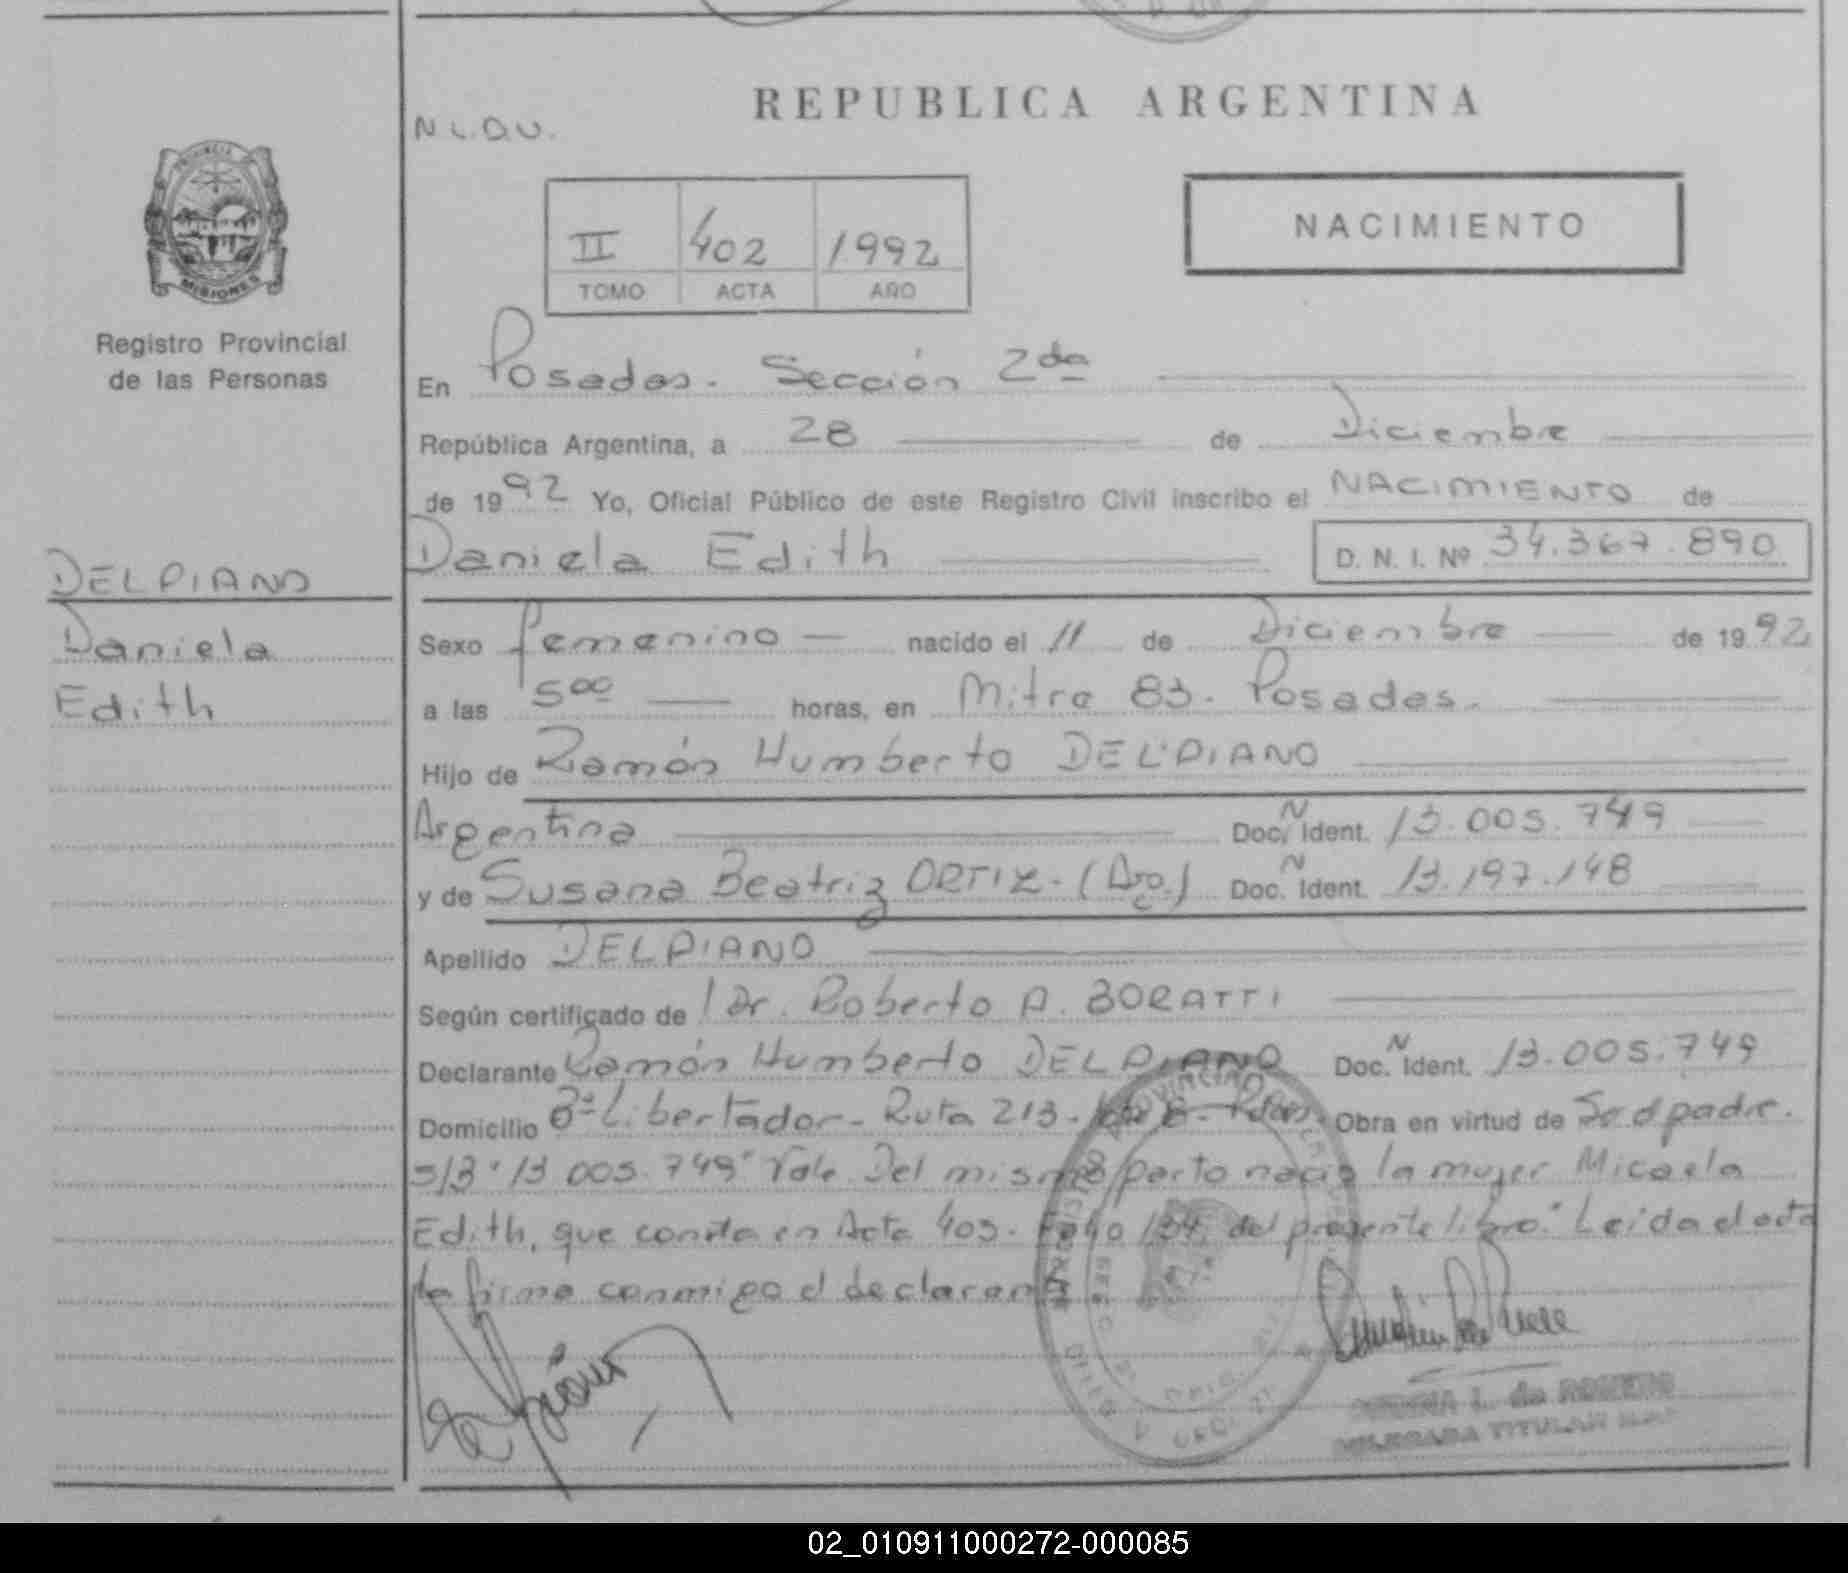 REPUBLICA ARGENTINA
N L.D.U.
PROVINCIA
MISIONES
Registro Provincial
de las Personas
II 402 1992
TOMO ACTA AÑO
NACIMIENTO
En Posadas. Sección 2da
República Argentina, a 28 de Diciembre
de 1992 Yo, Oficial Público de este Registro Civil inscribo el NACIMIENTO de
Daniela Edith D. N. I. Nº 34.367.890
DELPIANO
Daniela
Edith
Sexo femenino nacido el 11 de Diciembre de 1992
a las 5 00 horas, en Mitre 83. Posadas.
Hijo de Ramón Humberto DELPIANO
Argentina Doc. N Ident. 13.005.749
y de Susana Beatriz ORTIZ. (Arg.) Doc. N Ident. 13.197.148
Apellido DELPIANO
Según certificado de Dr. Roberto A. BORATTI
Declarante Ramón Humberto DELPIANO Doc. N Ident. 13.005.749
Domicilio Bº Libertador - Ruta 213 - Obra en virtud de Se d padre.
S/B "13 005.749" Vale. Del mismo parto nació la mujer Micaela
Edith, que consta en Acta 403. Folio 134, del presente libro." Leida el acta
la firma conmigo el declarante
DELEGADA TITULAR
02_010911000272-000085